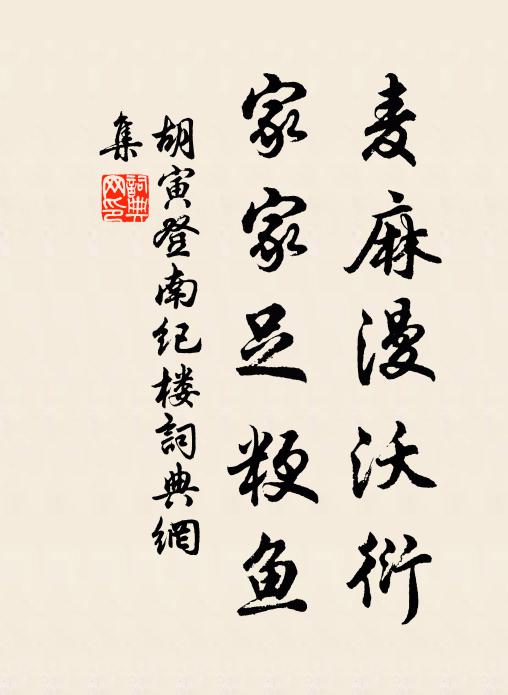 麦麻漫沃衍
家家足粳鱼
胡寅登南纪楼詞典網
集
詞典
网印